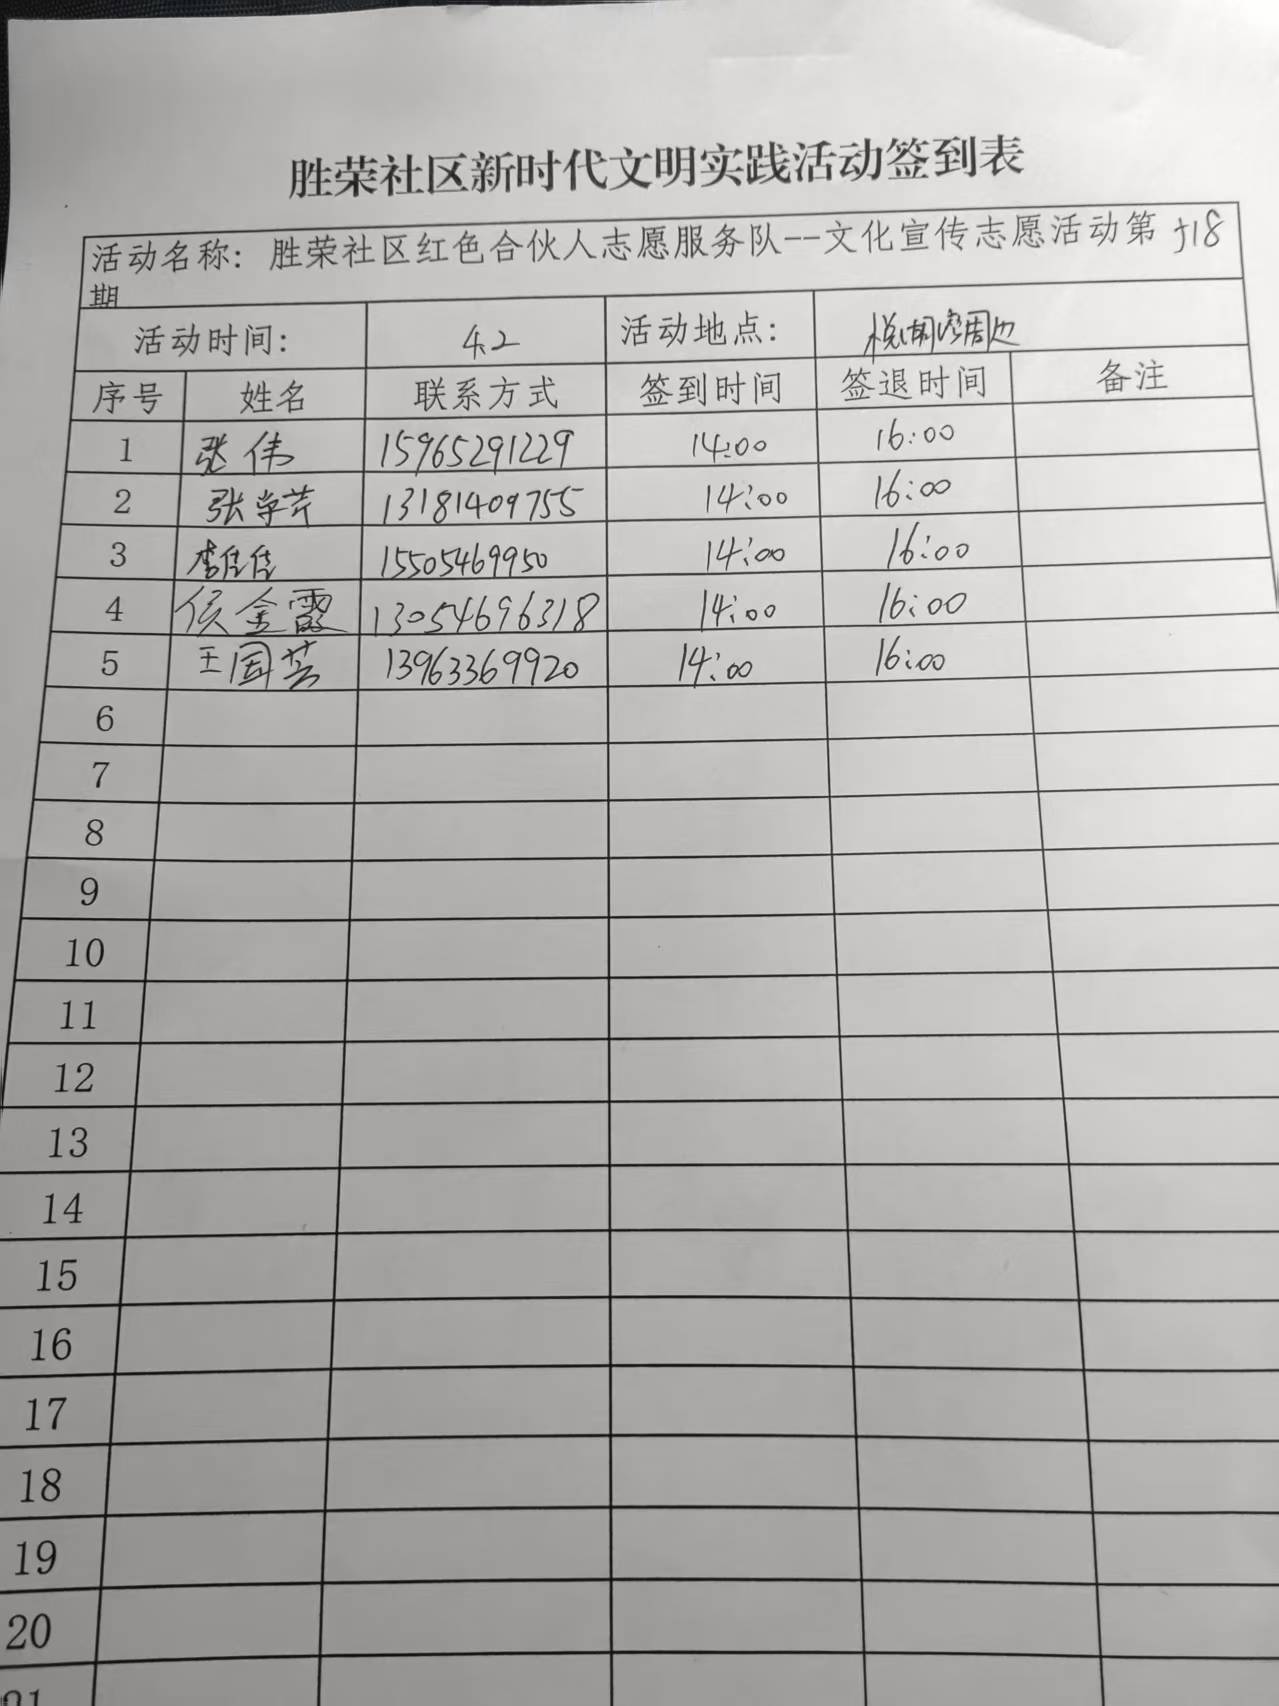 胜荣社区新时代文明实践活动签到表
活动名称：胜荣社区红色合伙人志愿服务队--文化宣传志愿活动第518
期
活动时间： 4.2 活动地点： 悦湖湾周边
序号 姓名 联系方式 签到时间 签退时间 备注
1 张伟 15965291229 14:00 16:00
2 张学芹 13181409755 14:00 16:00
3 李佳佳 15505469950 14:00 16:00
4 侯金霞 13054696318 14:00 16:00
5 王国芸 13963369920 14:00 16:00
6
7
8
9
10
11
12
13
14
15
16
17
18
19
20
21